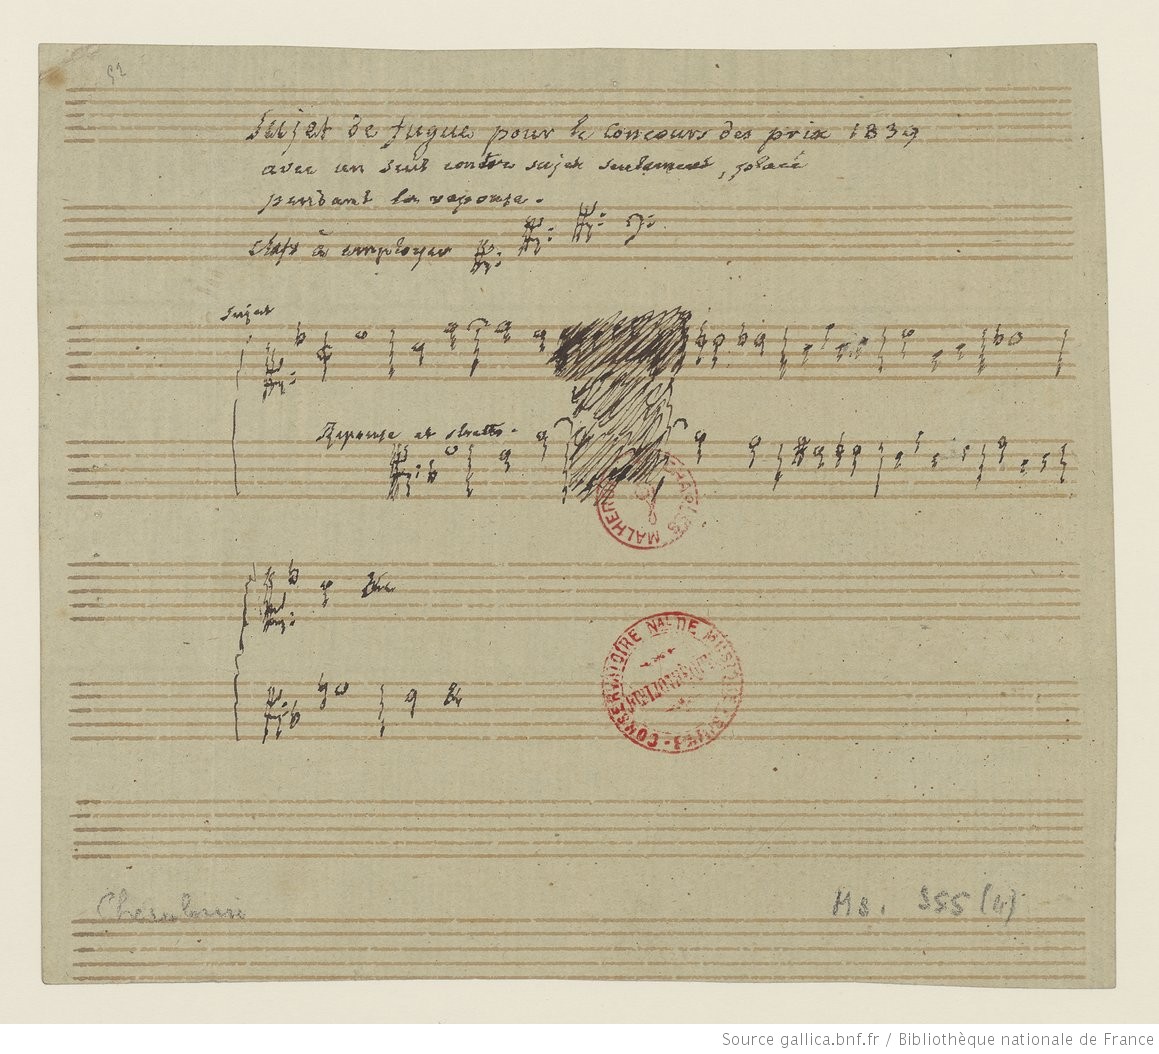 92
Sujet de fugue pour le concours des prix 1839
avec un seul contre sujet seulement, placé
pendant la reponse.
clefs à employer
Sujet
Reponse et stretto.
CHARLES MALHERBE
&c
CONSERVATOIRE NAL DE MUSIQUE
BIBLIOTHÈQUE
&c
Cherubini
Ms. 355 (4)
Source gallica.bnf.fr / Bibliothèque nationale de France